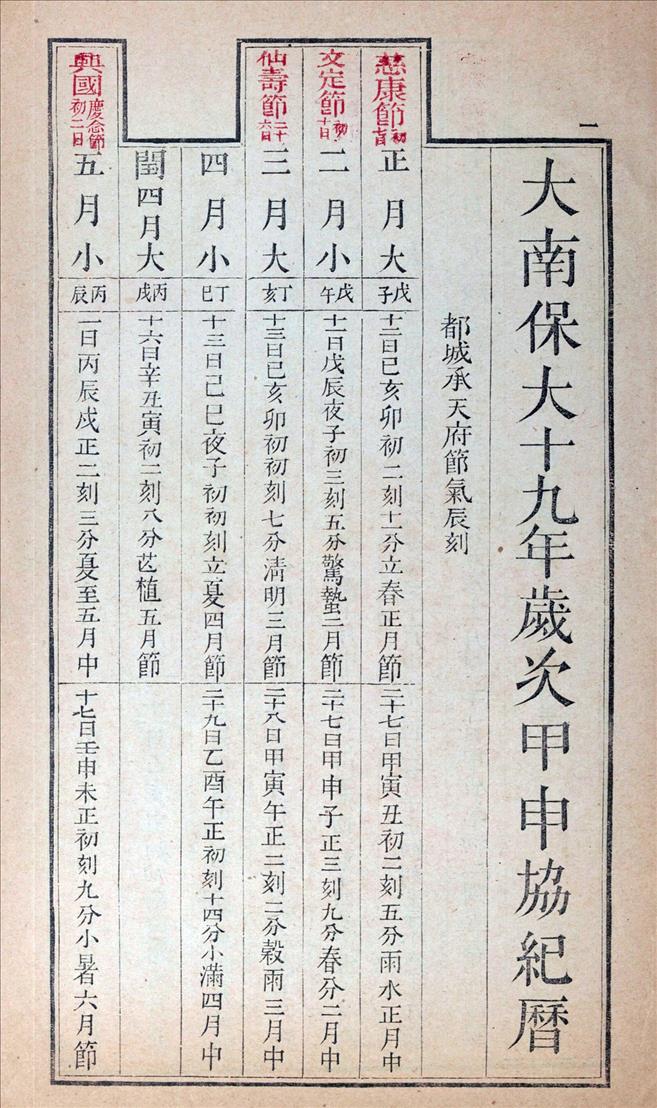 一
大南保大十九年歲次甲申協紀曆
都城承天府節氣辰刻
慈康節
正月大
戊子
十二日己亥卯初二刻十一分立春正月節
二十七日甲寅丑初二刻五分雨水正月中
文定節初十日
二月小
戊午
十一日戊辰夜子初三刻五分驚蟄二月節
二十七日甲申子正三刻九分春分二月中
仙壽節二十六日
三月大
丁亥
十三日己亥卯初初刻七分清明三月節
二十八日甲寅午正二刻二分穀雨三月中
四月小
丁巳
十三日己巳夜子初初刻立夏四月節
二十九日乙酉午正初刻十四分小滿四月中
閏四月大
丙戌
十六日辛丑寅初二刻八分芒植五月節
興國慶念節初二日
五月小
丙辰
一日丙辰戌正二刻三分夏至五月中
十七日壬申未正初刻九分小暑六月節